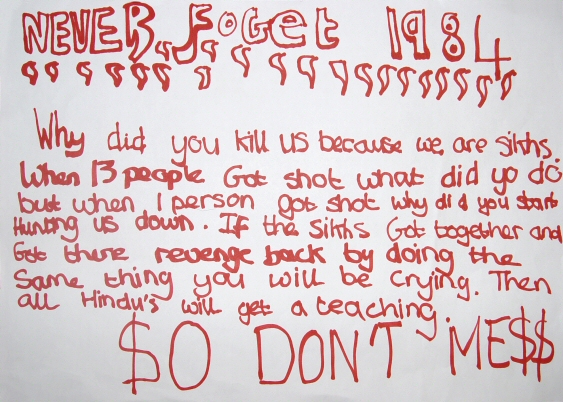 NEVER foget 1984
Why did you kill us because we are sikhs.
When 13 people Got shot what did yo do
but when 1 person got shot why did you start
Hunting us down. If the Sikhs Got together and
Got there revenge back by doing the
Same thing you will be crying. Then
all Hindu's will get a teaching.
$O DON'T ME$$